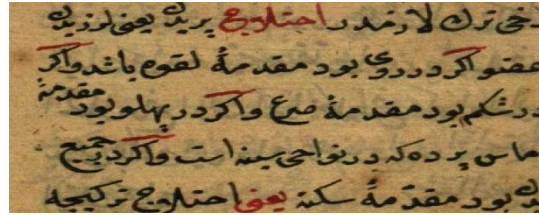 اختلاج پریدن یعنی لرزیدن
عضو اکر در روی بود مقدمهٔ لقوه باشد واکر
در شکم بود مقدمهٔ صرع واکر در پهلو بود مقدمهٔ
که در نواحی سینه است واکر در جمیع
بدن بود مقدّمهٔ سکته یعنی اختلاج ترکیجه